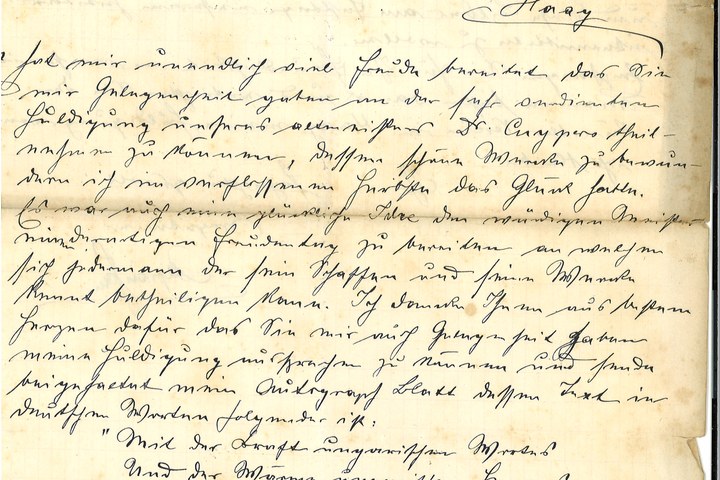 Haag
hat mir unendlich viel Freude bereitet das Sie
mir Gelegenheit gaben an der sehr verdienten
Huldigung unseres altmeisters Dr. Cuypers theil-
nehmen zu können, dessen schöne Wercke zu bewun-
dern ich im verflossenen Herbste das Glück hatte.
Es war auch eine glückliche Idee den würdigen Meister
einen derartigen Freudentag zu bereiten an welchem
sich jedermann der sein Schaffen und seine Wercke
kennt betheiligen kann. Ich dancke Ihnen aus bestem
Herzen dafür das Sie mir auch Gelegenheit gaben
meine Huldigung aussprechen zu können und sende
beigefaltet mein Autograph Blatt dessen Text in
deutschen Worten folgender ist:
"Mit der Kraft ungarischen Wortes
Und der Wärme